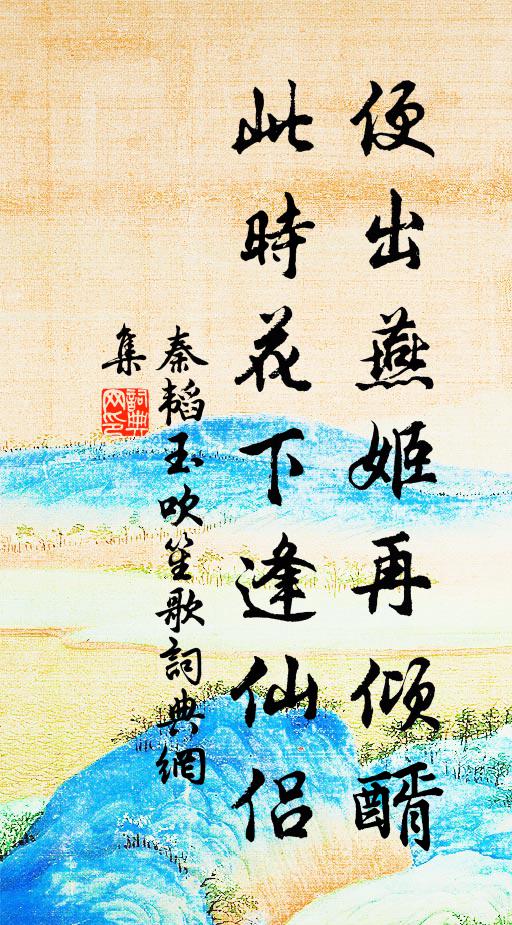 便出燕姬再傾醑
此時花下逢仙侶
秦韬玉吹笙歌詞典網
集
詞典
网印